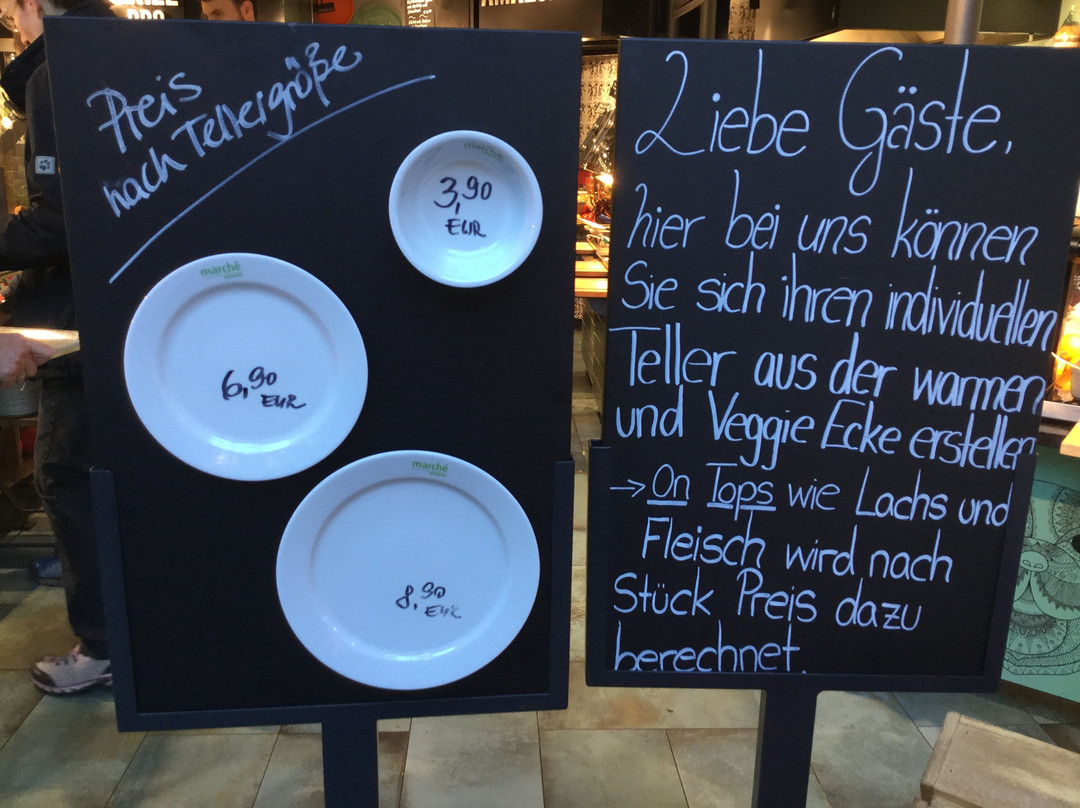 Preis
nach Tellergröße
marché
3,90
EUR
marché
6,90
EUR
marché
8,90
EUR
Liebe Gäste,
hier bei uns können
Sie sich ihren individuellen
Teller aus der warmen
und Veggie Ecke erstellen
→ On Tops wie Lachs und
Fleisch wird nach
Stück Preis dazu
berechnet.